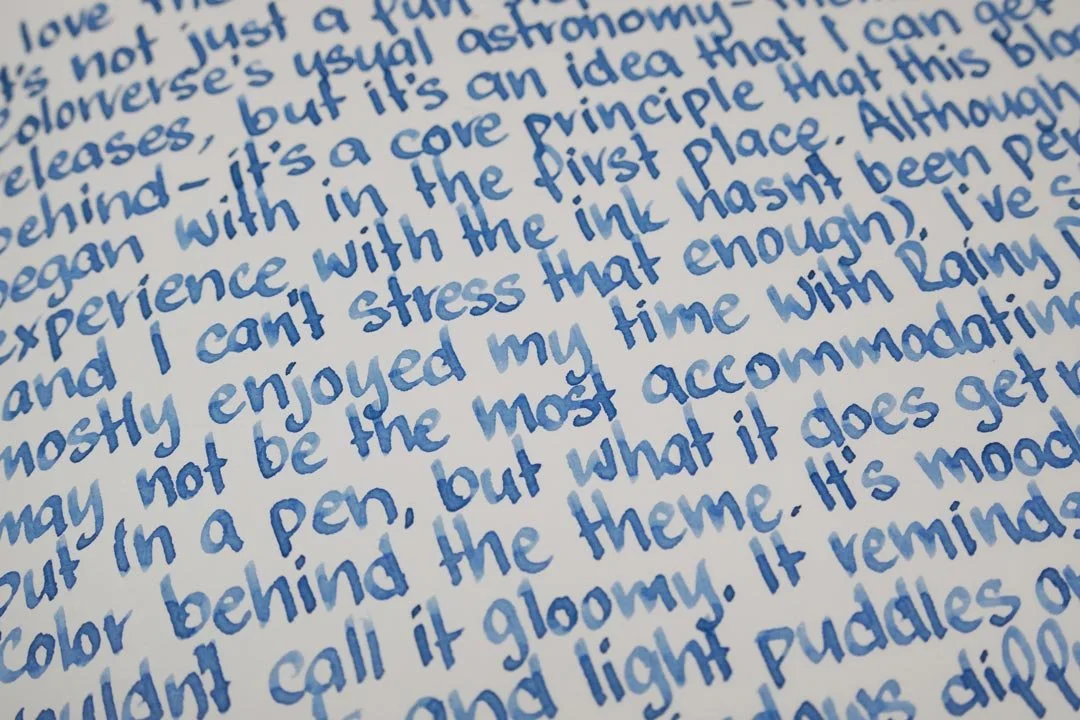 love the
t's not just a fun
Colorverse's usual astronomy-
eleases, but it's an idea that I can get
behind - It's a core principle that this blo
began with in the first place. Although
experience with the ink hasn't been per
and I can't stress that enough), I've s
mostly enjoyed my time with Rainy
may not be the most accommodating
put in a pen, but what it does get r
color behind the theme. It's mood
ouldn't call it gloomy. It reminds
and light puddles o
diff